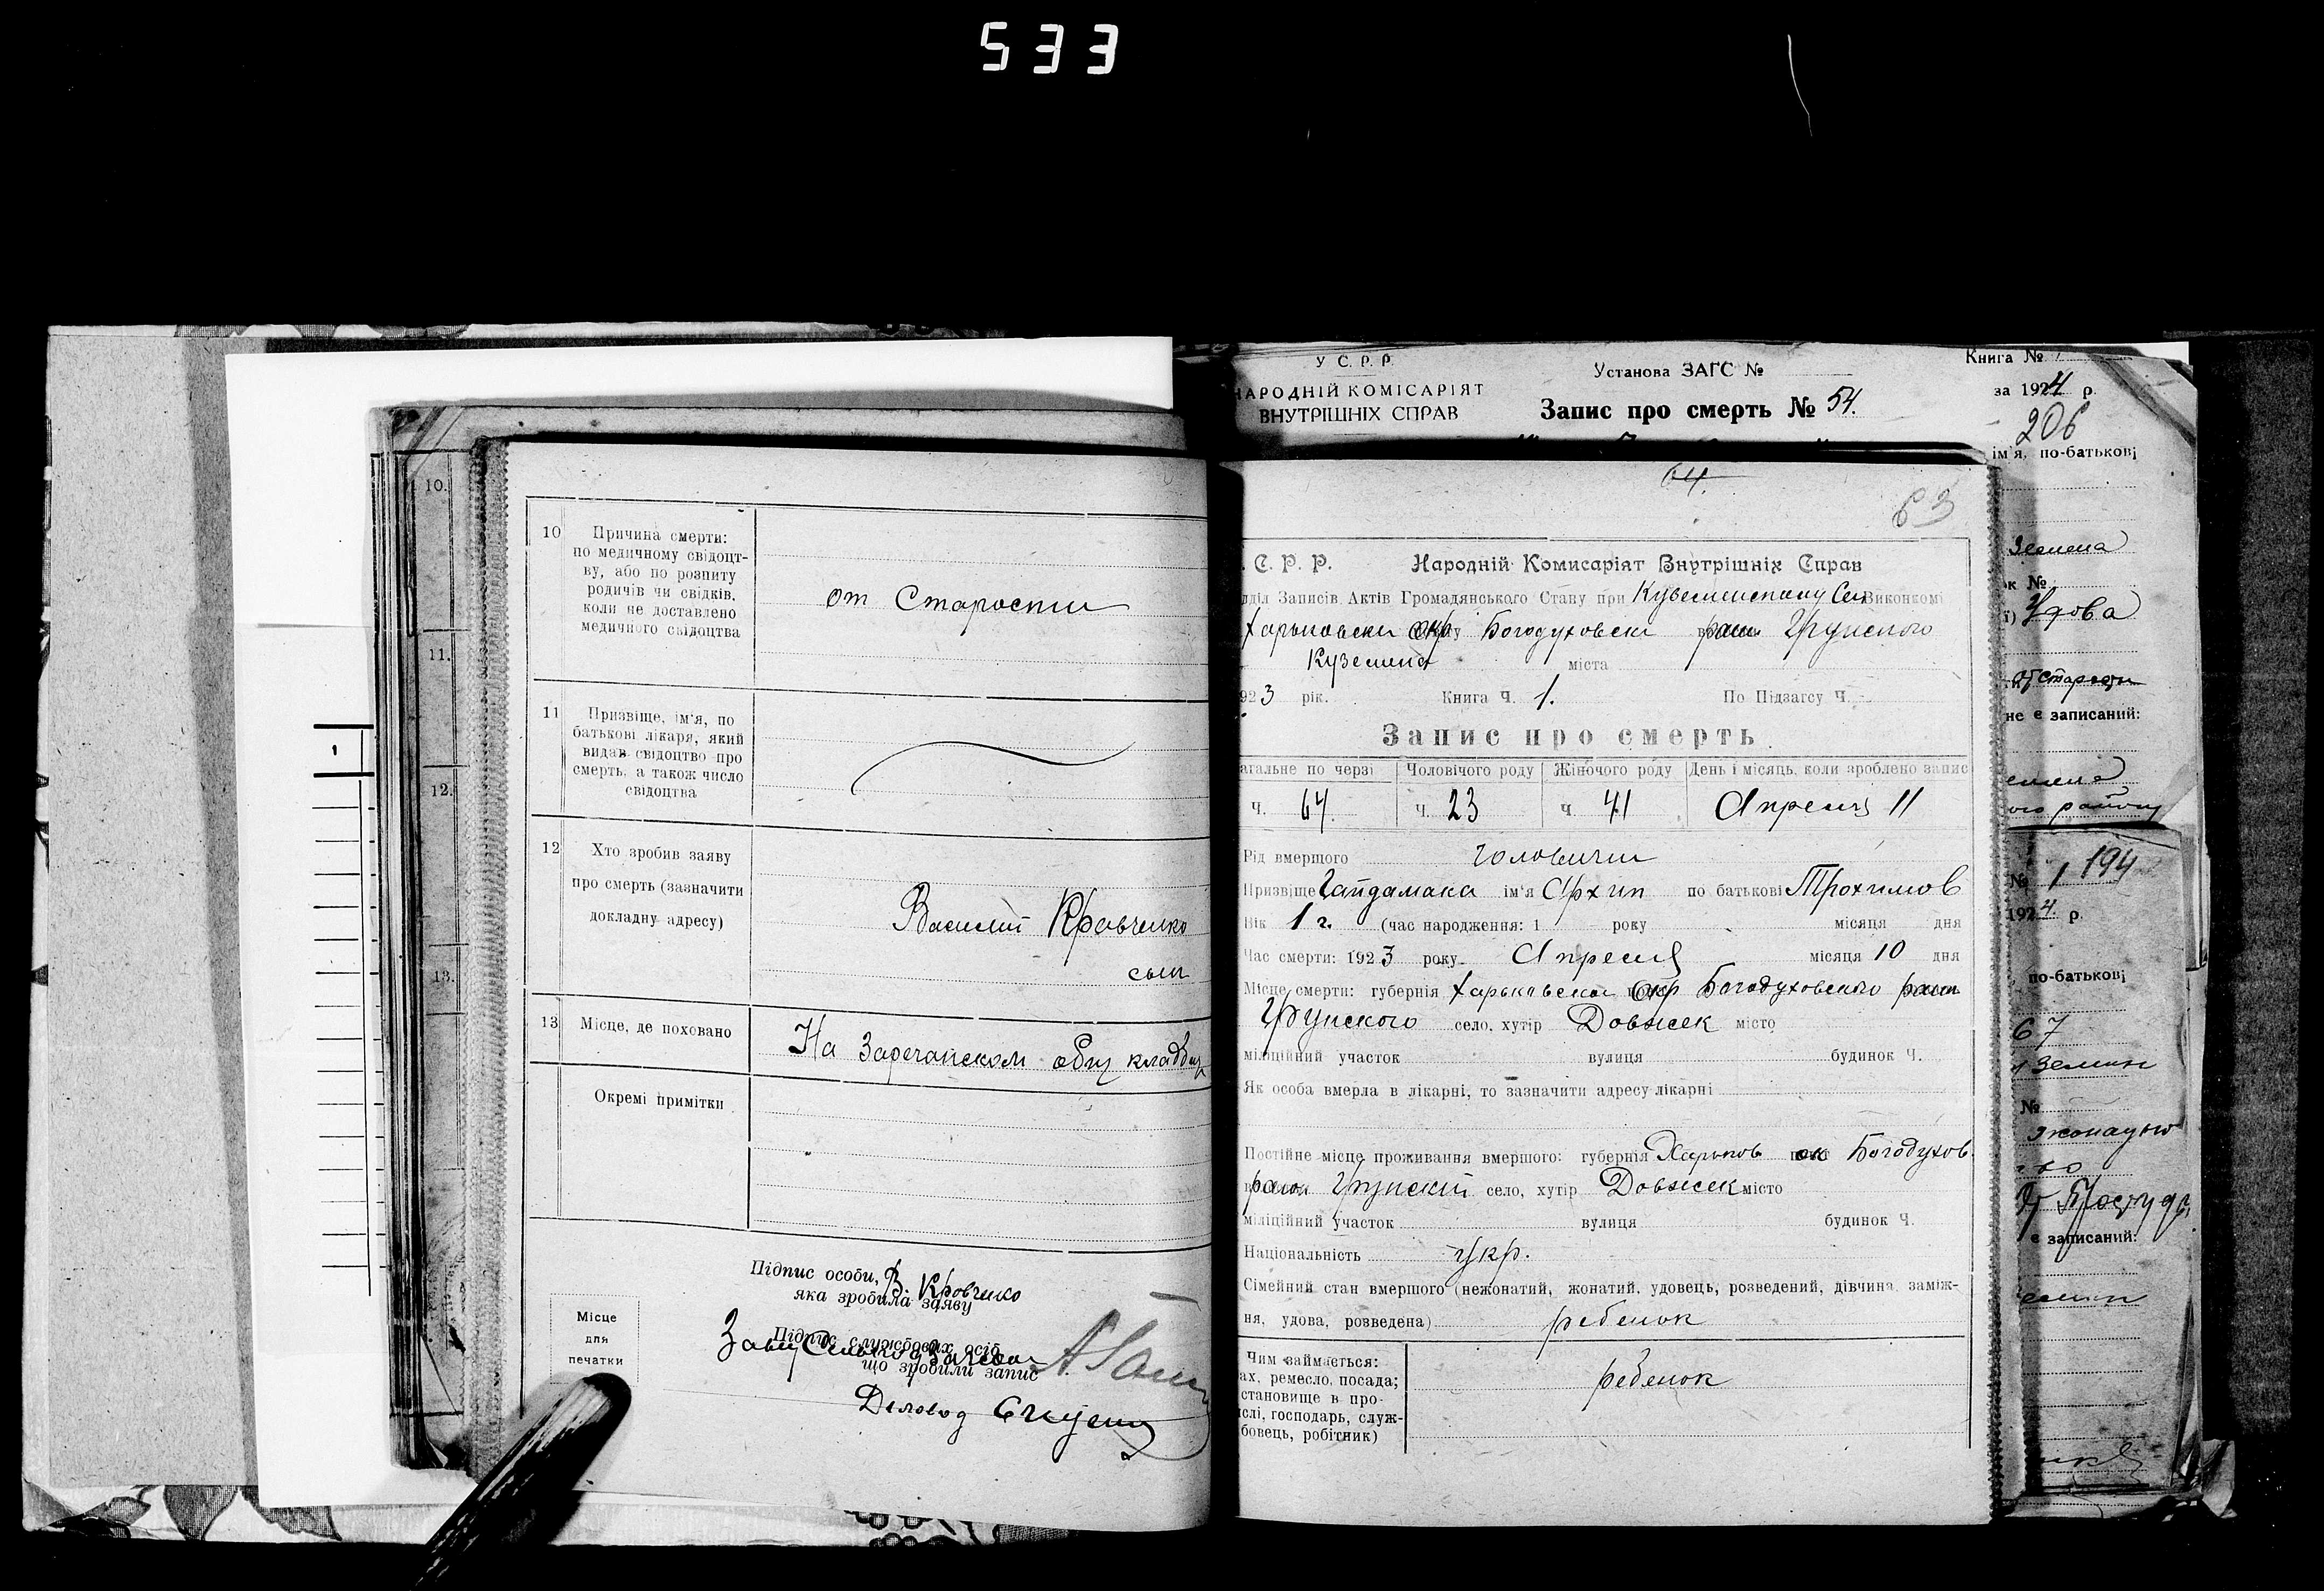 533
10.
11.
12.
13.
1
10
Причина смерти:
по медичному свідоцт-
ву, або по розпиту
родичів чи свідків,
коли не доставлено
медичного свідоцтва
от Старости
11
Призвіще, ім'я, по
батькові лікаря, який
видав свідоцтво про
смерть, а також число
свідоцтва
12
Хто зробив заяву
про смерть (зазначити
докладну адресу)
Василий Кравченко
сын
13
Місце, де поховано
На Заречанском общ кладбищ
Окремі примітки
Підпис особи,
яка зробила заяву
В. Кравченко
Підпис службових осіб
що зробили запис
Місце
для
печатки
Деловод
У С. Р. Р.
НАРОДНІЙ КОМІСАРІЯТ
ВНУТРІШНІХ СПРАВ
Установа ЗАГС №
Запис про смерть № 54.
Книга №
за 1924 р.
206
ім'я, по-батькові
64.
63
С. Р. Р. Народній Комисаріят Внутрішніх Справ
Записів Актів Громадянського Стану при Виконкомі
Харьковски окр Богодуховски Грунского
Куземина міста
3 рік. Книга Ч. 1. По Підзагсу Ч.
Запис про смерть
по черзі Чоловічого роду Жіночого роду День і місяць, коли зроблено запис
Ч. 64. Ч. 23 Ч 41 Апреля 11
Рід вмершого чоловичий
Призвіще Гайдамака ім'я Архип по батькові Трохимов
Вік 1 г. (час народження: 1 року місяця дня
Час смерти: 1923 року Апреля місяця 10 дня
Місце смерти: губернія Харьковска окр Богодуховского раин
Грунского село, хутір Довжек місто
міліційний участок вулиця будинок Ч.
Як особа вмерла в лікарні, то зазначити адресу лікарні
Постійне місце проживання вмершого: губернія Харьков ок Богодухов.
Грунский село, хутір Довжек місто
міліційний участок вулиця будинок Ч.
Національність укр.
Сімейний стан вмершого (нежонатий, жонатий, удовець, розведений, дівчина, заміж-
ня, удова, розведена) ребенок
Чим займається:
ах, ремесло, посада;
становище в про-
слі, господарь, служ-
бовець, робітник)
ребенок
к №
Удова
не є записаний:
№ 1 194
1924. р.
по-батькові
67
№
є записаний: